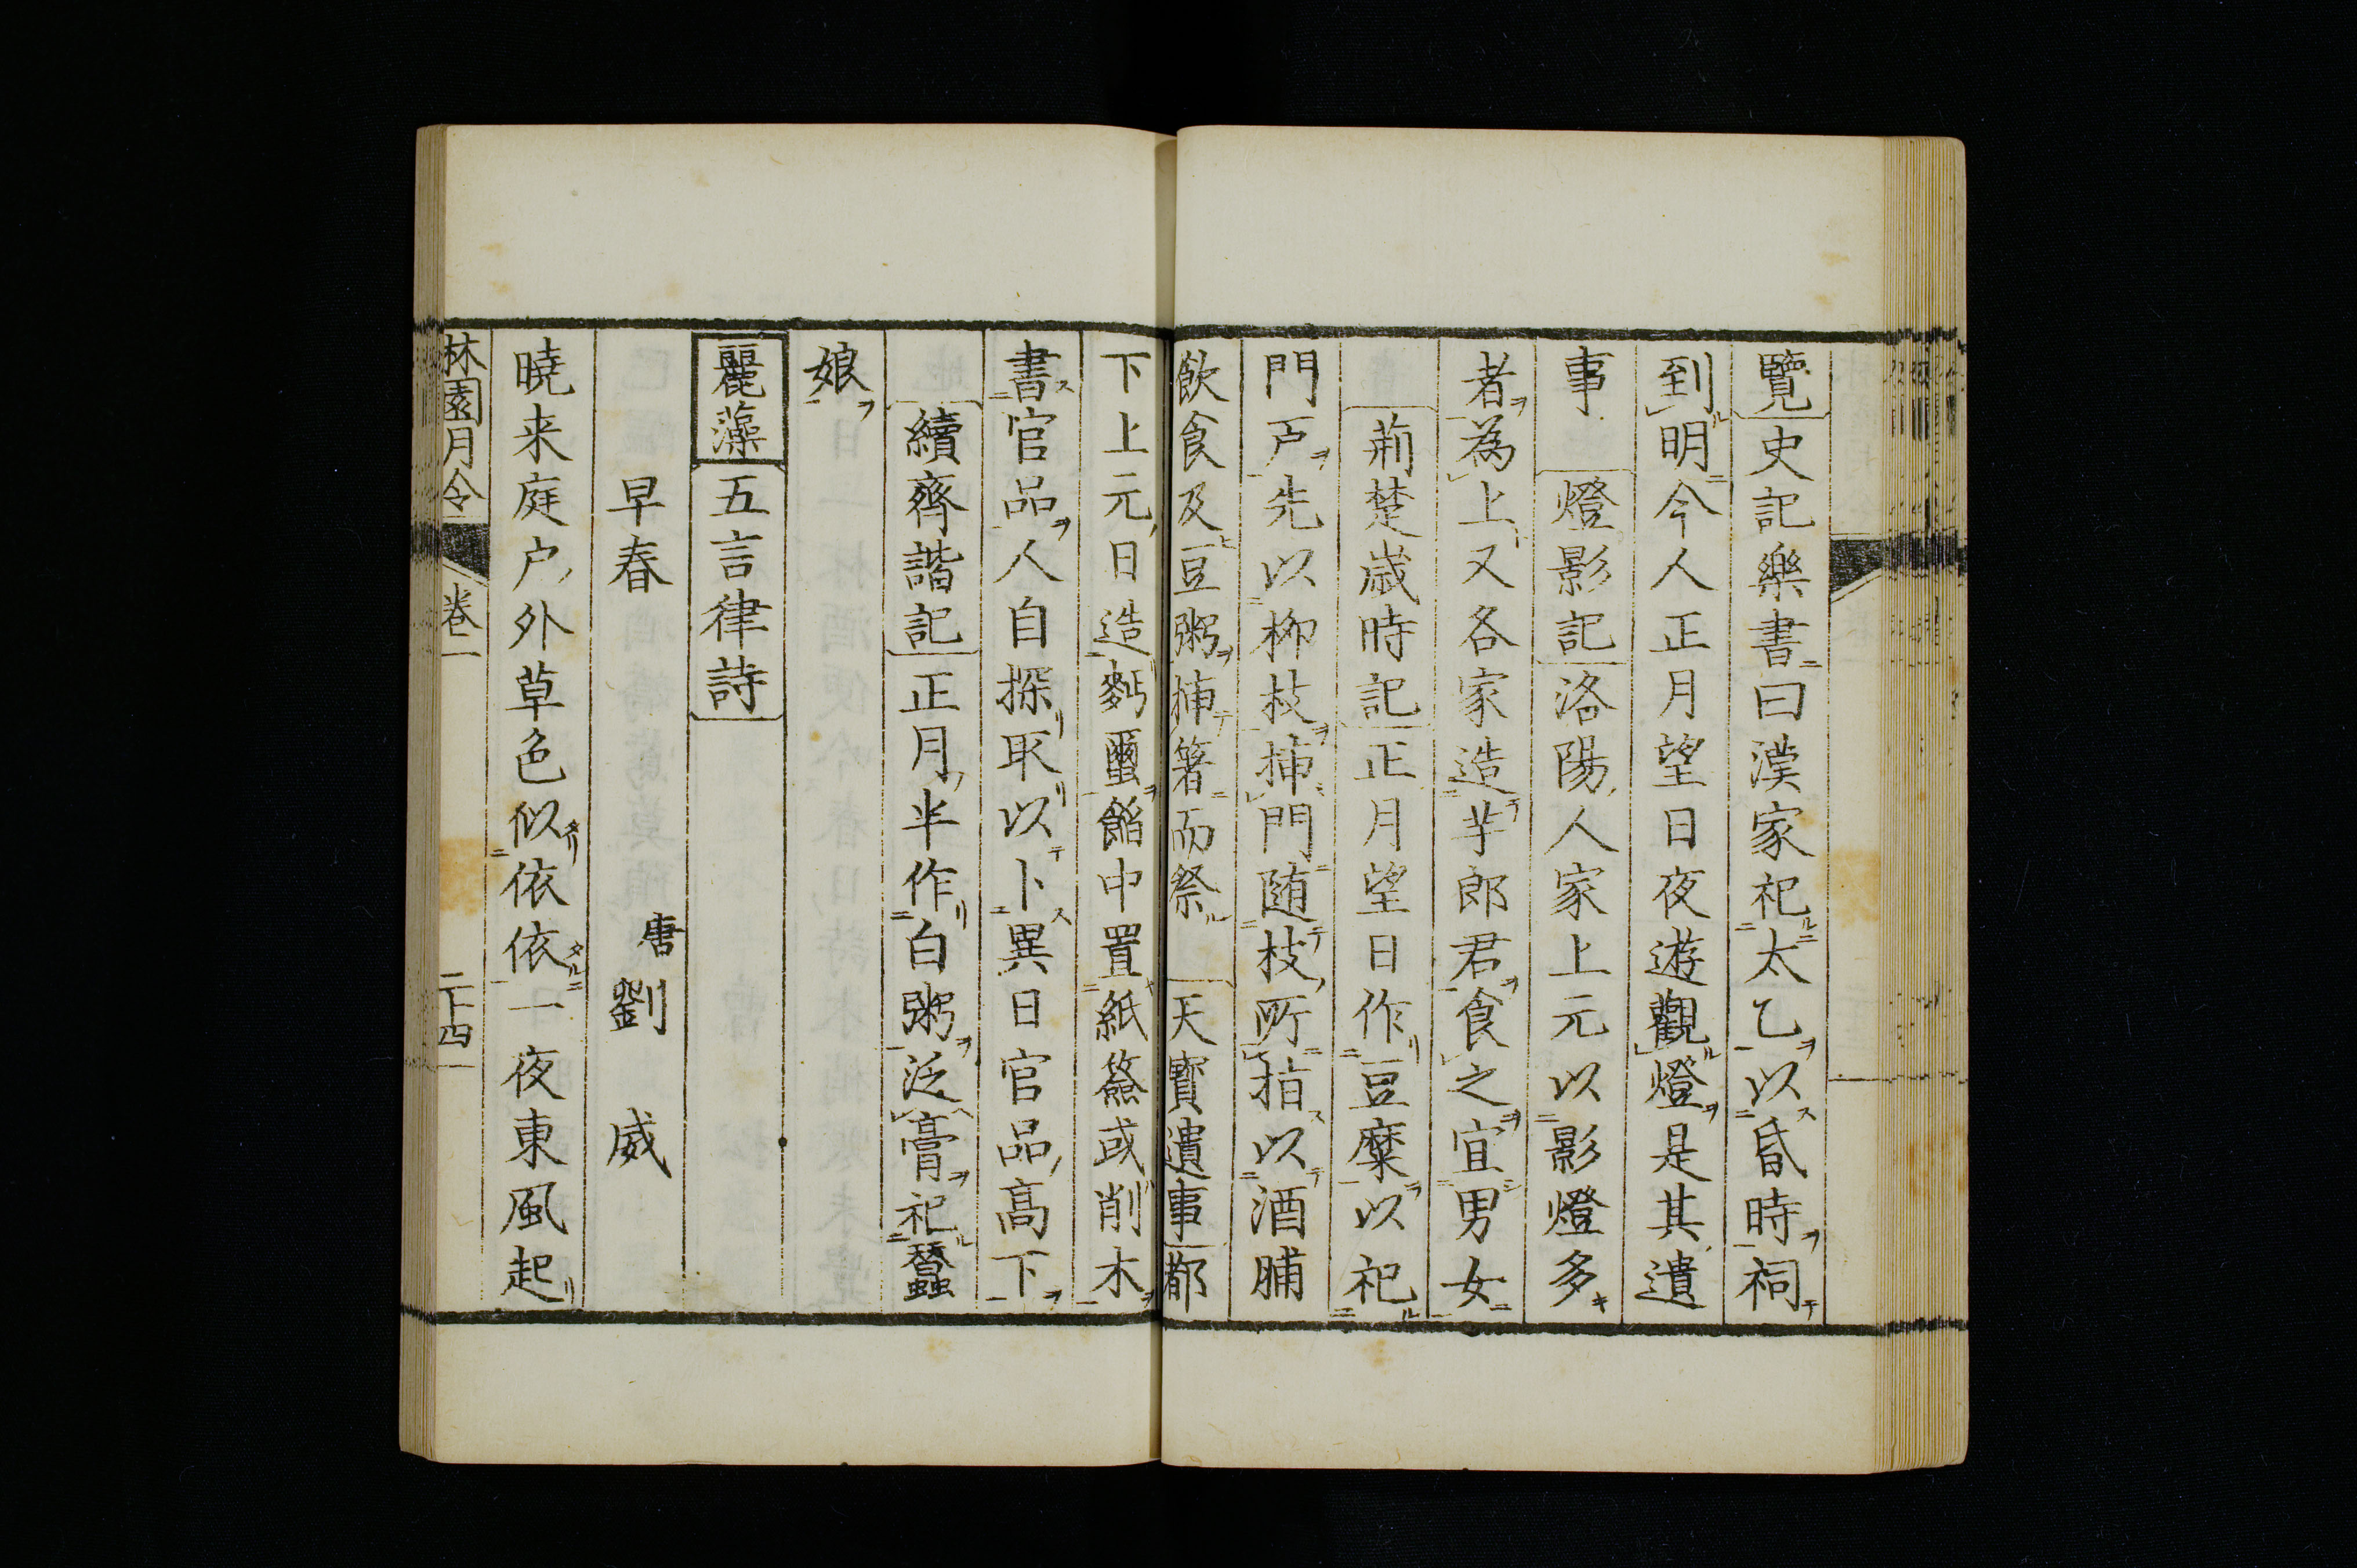 覽史記樂書曰漢家祀太乙以昏時祠
到明今人正月望日夜遊觀燈是其遺
事燈影記洛陽人家上元以影燈多
者為上又各家造芋郎君食之宜男女
荊楚歲時記正月望日作豆糜以祀
門戶先以柳枝揷門随枝所指以酒脯
飲食及豆粥揷箸而祭天寶遺事都
下上元日造麪蠒餡中置紙簽或削木
書官品人自探取以卜異日官品高下
續齊諧記正月半作白粥泛膏祀蠶
娘
麗藻五言律詩
早春唐劉威
曉来庭户外草色似依依一夜東風起
林園月令卷一二十四